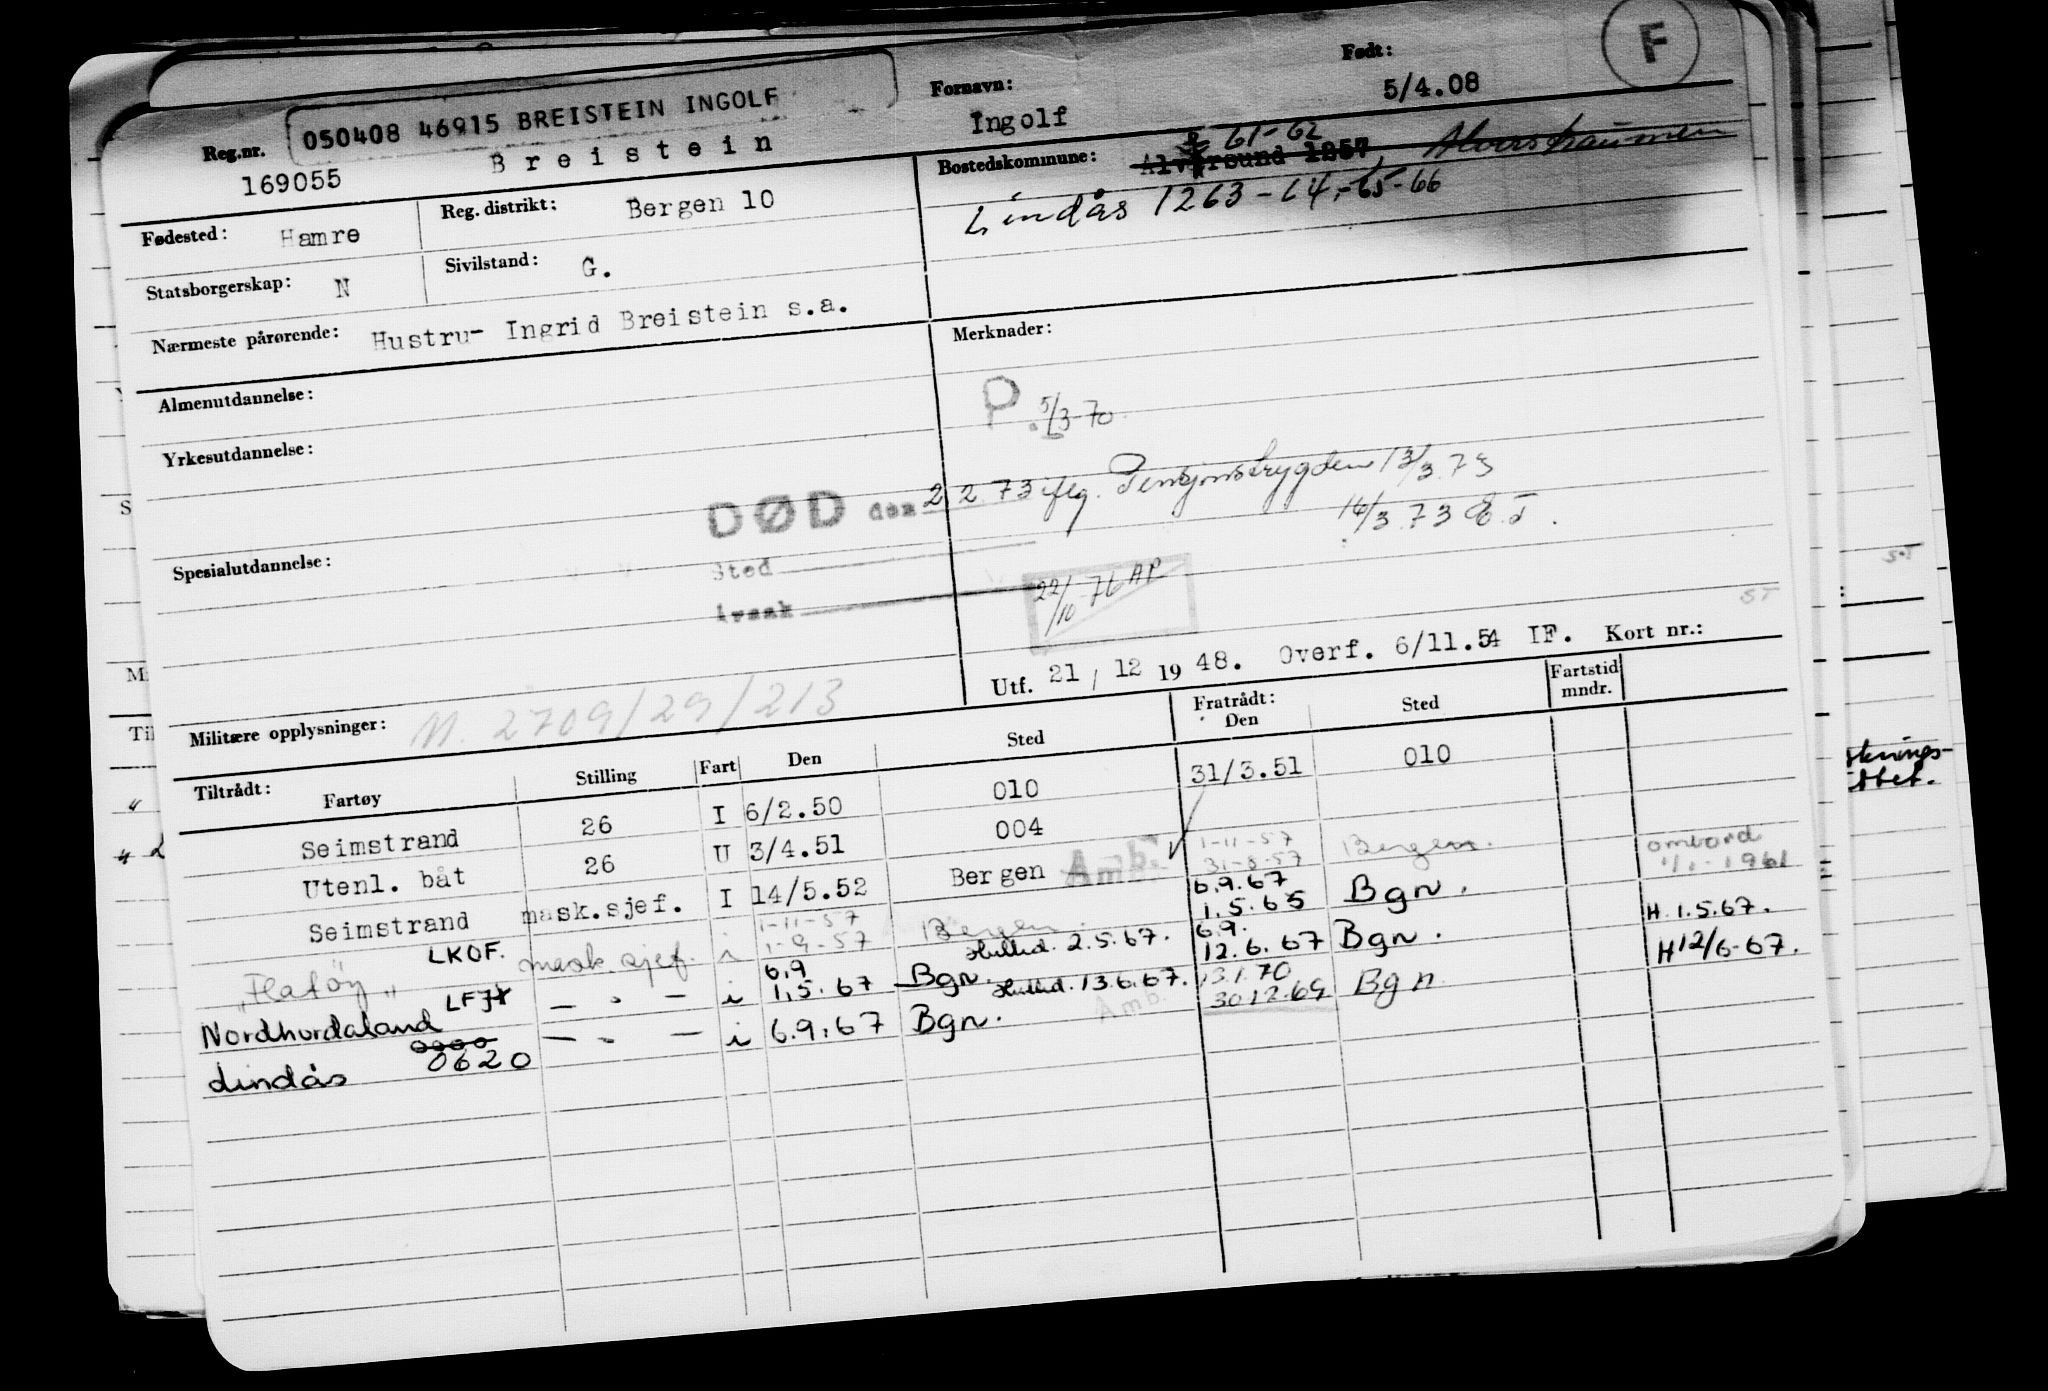 F
050408 46915 BREISTEIN INGOLF
Fornavn: Født:
Ingolf 5/4.08
Reg.nr. Breistein
169055
Bostedskommune: Alversund 1257, 61-62 Alverstraumen
Lindås 1263-64,-65-66
Fødested: Hamre Reg. distrikt: Bergen 10
Statsborgerskap: N Sivilstand: G.
Nærmeste pårørende: Hustru- Ingrid Breistein s.a.
Merknader:
Almenutdannelse:
P. 5/3-70
Yrkesutdannelse:
DØD den 2 2 73 iflg. Pensjonstrygden 13/3.73
14/3.73 E.T.
Spesialutdannelse:
Sted
Årsak
22/10-76 AP
ST
Utf. 21/12 1948. Overf. 6/11.54 IF. Kort nr.:
Militære opplysninger: M. 2709/29/213
Tiltrådt: Fartøy Stilling Fart Den Sted Fratrådt: Den Sted Fartstid mndr.
Seimstrand 26 I 6/2.50 010 31/3.51 010
Utenl. båt 26 U 3/4.51 004
Seimstrand mask.sjef. I 14/5.52 Bergen Amb. 1-11-57 31-8-57 Bergen. ombord 1/1-1961
"Flatøy" LKOF. mask.sjef. i 1-11-57 1-9-57 Bergen Hullid. 2.5.67. 6.9.67 1.5.65 Bgn. H. 1.5.67.
Nordhordaland LFJY — " — i 6.9 1.5.67 Bgn. Hullid. 13.6.67. 6.9. 12.6.67 Bgn. H 12/6-67.
Lindås 0620 — " — i 6.9.67 Bgn. Amb. 13.1.70 30.12.69 Bgn